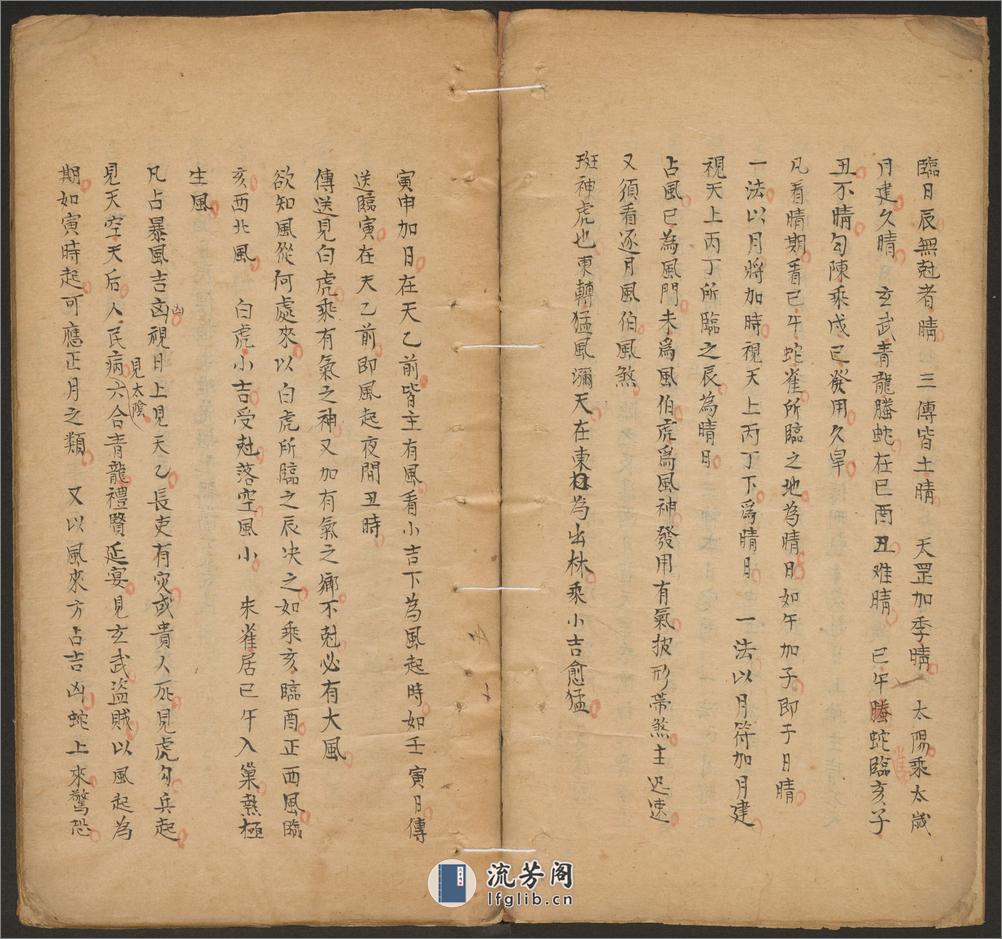 臨日辰無尅者晴　三傳皆土晴　天罡加季晴　太陽乘太歲
月建久晴　玄武青龍螣蛇在巳酉丑难晴　巳午螣蛇臨亥子
丑不晴勾陳乘戌巳發用久旱
凡看晴期看巳午蛇雀所臨之地為晴日如午加子即子日晴
一法以月將加時視天上丙丁下爲晴日　一法以月符加月建
視天上丙丁所臨之辰為晴日
占風巳為風門未爲風伯虎爲風神發用有氣披刑帶煞主迅速
又須看逐月風伯風煞
斑神虎也東轉猛風瀰天在東為出林乘小吉愈猛
寅申加日在天乙前皆主有風看小吉下為風起時如壬寅月傳
送臨寅在天乙前即風起夜間丑時
傳送見白虎乘有氣之神又加有氣之鄉不尅必有大風
欲知風從何處來以白虎所臨之辰决之如乘亥臨酉正西風臨
亥西北風　白虎小吉受尅落空風小　朱雀居巳午入巢热極
生風
凡占暴風吉凶視日上見天乙長吏有灾或貴人死見虎勾兵起
凶
見天空天后人民病六合青龍禮賢延宴見玄武盗賊以風起為
見太陰
期如寅時起可應正月之類　又以風來方占吉凶蛇上來驚恐
流芳阁
lfglib.cn